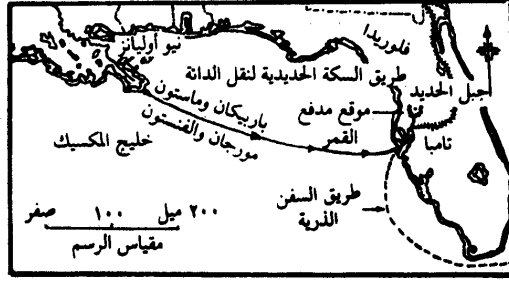 فلوريدا
نيو أوليانز
طريق السكة الحديدية لنقل الدانة
جبل الحديد
موقع مدفع
القمر
تامبا
باربيكان وماستون
مورجان والفنستون
خليج المكسيك
طريق السفن
الذرية
صفر ١٠٠ ٢٠٠ ميل
مقياس الرسم